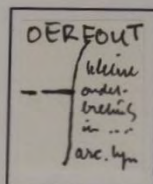 OERFOUT
kleine
onder-
breking
in ...
arc. lijn